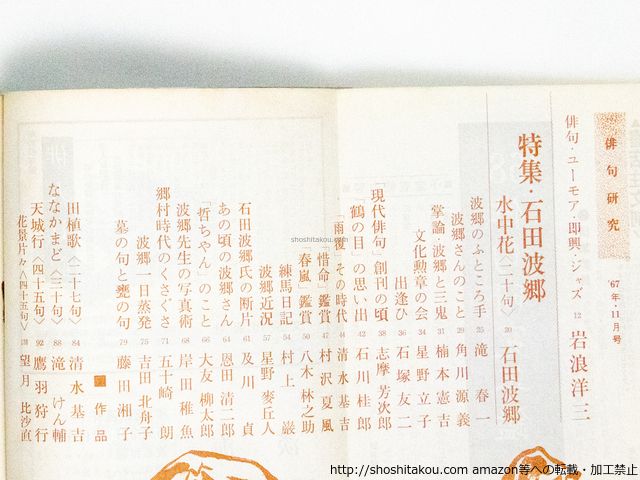 俳句研究
'67年・11月号
俳句・ユーモア・即興・ジャズ 12 岩浪洋三
特集・石田波郷
水中花〈二十句〉 20 石田波郷
波郷のふところ手 25 滝春一
波郷さんのこと 29 角川源義
掌論・波郷と三鬼 31 楠本憲吉
文化勲章の会 34 星野立子
出逢ひ 36 石塚友二
「現代俳句」創刊の頃 38 志摩芳次郎
「鶴の目」の思い出 42 石川桂郎
「雨覆」その時代 44 清水基吉
「惜命」鑑賞 47 村沢夏風
「春嵐」鑑賞 50 八木林之助
練馬日記 54 村上巌
波郷近況 57 星野麦丘人
石田波郷氏の断片 61 及川貞
あの頃の波郷さん 64 恩田清二郎
「哲ちやん」のこと 66 大友柳太郎
波郷先生の写真術 68 岸田稚魚
郷村時代のくさぐさ 71 五十崎朗
波郷一日蒸発 75 吉田北舟子
墓の句と甕の句 79 藤田湘子
作品
田植歌〈二十七句〉 84 清水基吉
ななかまど〈三十句〉 88 滝けん輔
天城行〈四十五句〉 92 鷹羽狩行
花景片々〈四十五句〉 望月比沙直
shoshitakou.com
http://shoshitakou.com amazon等への転載・加工禁止